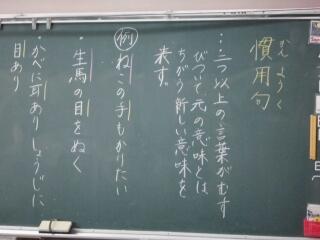 慣用句
かんようく
…二つ以上の言葉がむす
びついて、元の意味とは
ちがう新しい意味を
来す。
例 ねこの手もかりたい
・生馬の目をぬく
かべに耳ありしょうじに
目あり